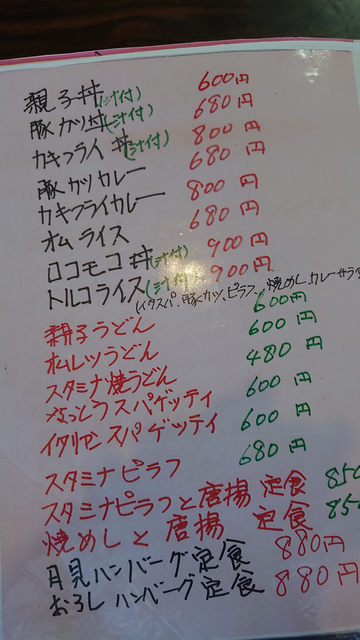 親子丼(汁付) 600円
豚カツ丼(汁付) 680円
カキフライ丼(汁付) 800円
豚カツカレー 680円
カキフライカレー 800円
オムライス 680円
ロコモコ丼(汁付) 900円
トルコライス(汁付) 900円
(イタスパ、豚カツ、ピラフ、焼めし、カレー、サラダ
親子うどん 600円
オムレツうどん 600円
スタミナ焼うどん 480円
なっとうスパゲッティ 600円
イタリアンスパゲッティ 600円
スタミナピラフ 680円
スタミナピラフと唐揚定食 850
焼めしと唐揚定食 850
月見ハンバーグ定食 880円
おろしハンバーグ定食 880円